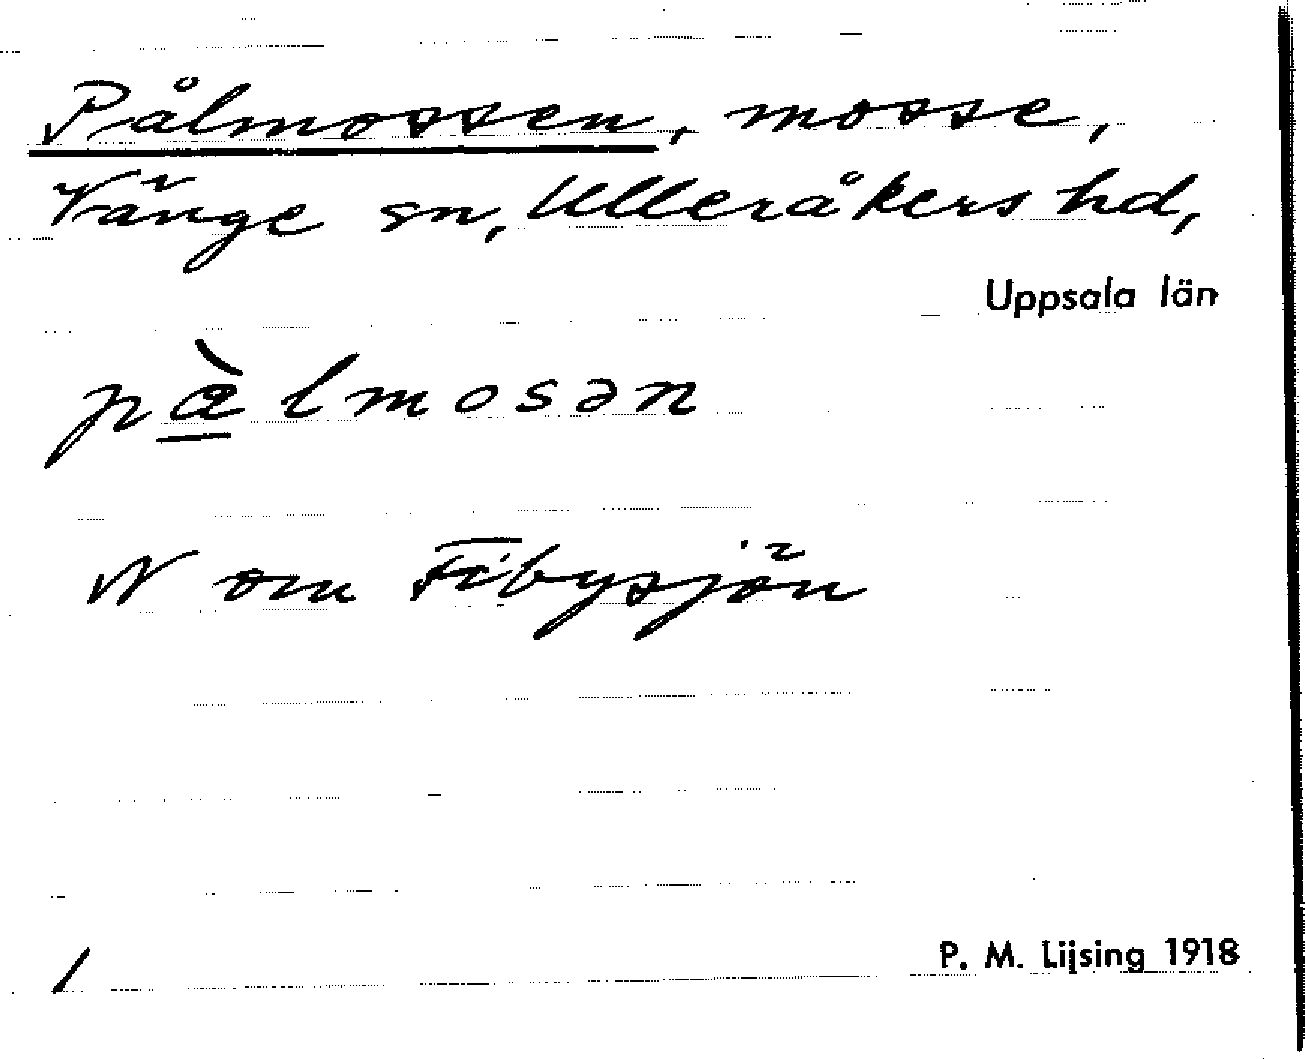 Pålmossen, mosse,
Vänge sn, Ulleråkers hd,
Uppsala län
pà̱lmosən
N om Fibysjön
/
P. M. Lijsing 1918